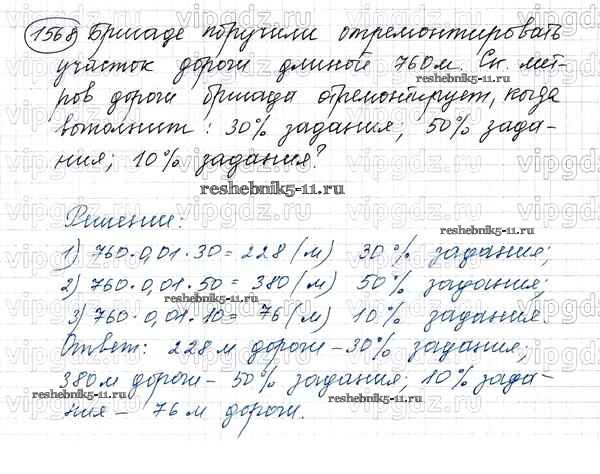 1568 Бригаде поручили отремонтировать
участок дороги длиной 760 м. Ск. мет-
ров дороги бригада отремонтирует, когда
выполнит: 30% задания; 50% зада-
ния; 10% задания?
reshebnik5-11.ru
Решение:
1) 760·0,01·30=228 (м) 30% задания;
2) 760·0,01·50=380 (м) 50% задания;
3) 760·0,01·10=76 (м) 10% задания.
Ответ: 228 м дороги - 30% задания;
380м дороги - 50% задания; 10% зада-
ния - 76 м дороги.